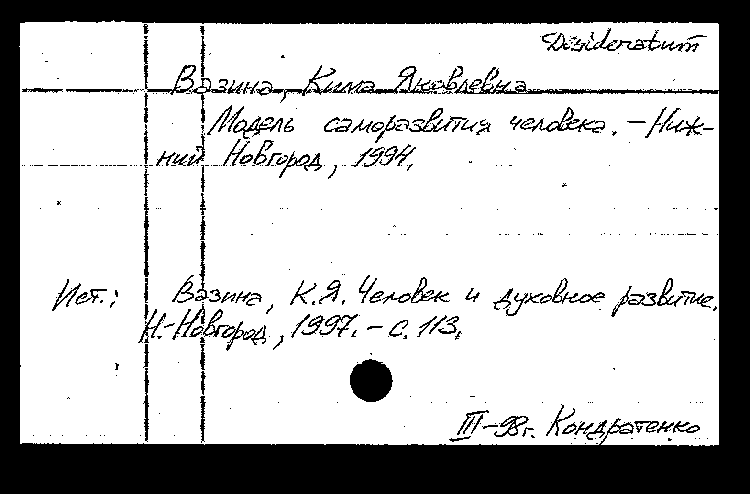 Desideratum
Вазина, Кима Яковлевна
Модель саморазвития человека. – Ниж-
ний Новгород, 1994.
Ист.: Вазина, К.Я. Человек и духовное развитие.
Н.-Новгород, 1997. – с. 113.
III–98г. Кондратенко